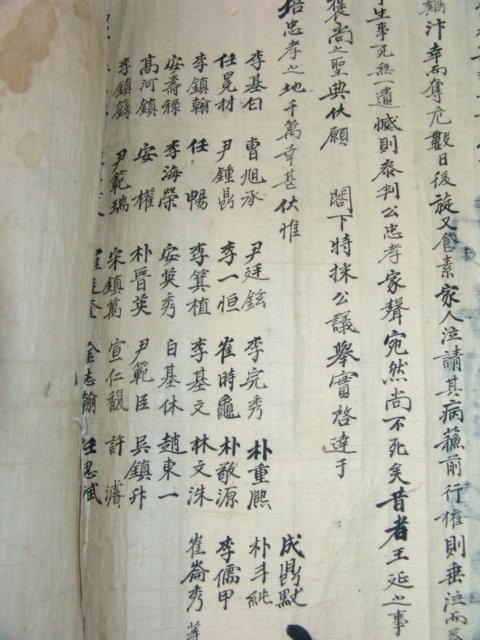 鷄汴幸而奪危數日後旋又食素家人泣請其病蘇前行權則垂泣而
生事死無一遺憾則泰判公忠孝家聲宛然尚不死矣昔者王延之事
褒尚之聖典伏願 閤下特採公議擧實啓達于
培忠孝之地千萬幸甚伏惟
李基白 曹旭承 尹廷鉉 李完秀 朴重熙 成鼎默
任冕材 尹鍾鼎 李一恒 崔時龜 朴敬源 朴斗純
李鎮翰 任暢 李箕植 李基文 林文洙 李儒甲
安壽祿 李海榮 安英秀 白基休 趙東一 崔崙秀 等
高河鎮 安權 朴晉英 尹範臣 吳鎮升
李鎮鐏 尹範瑞 宋鎮萬 宣仁馥 許濬
金志翰 任思斌